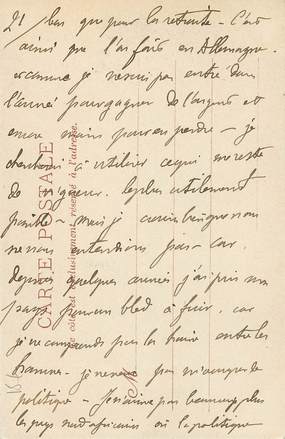 bon que pour la retraite - C'est
ainsi que l'on fait en Allemagne.
et comme je ne suis pas entré dans
l'armée pour gagner de l'argent et
encore moins pour en perdre - je
chercherai à utiliser ce qui me reste
de vigueur. le plus utilement
possible - Mais je crains bien que nous
ne nous entendions pas - car
depuis quelques années j'ai pris mon
pays pour un bled à fuir, car
je ne comprends pas la haine entre les
hommes - je ne veux pas m'occuper de
politique - Je n'aime pas beaucoup plus
les pays nord-africains où la politique
CARTE POSTALE
Ce côté est exclusivement réservé à l'adresse.